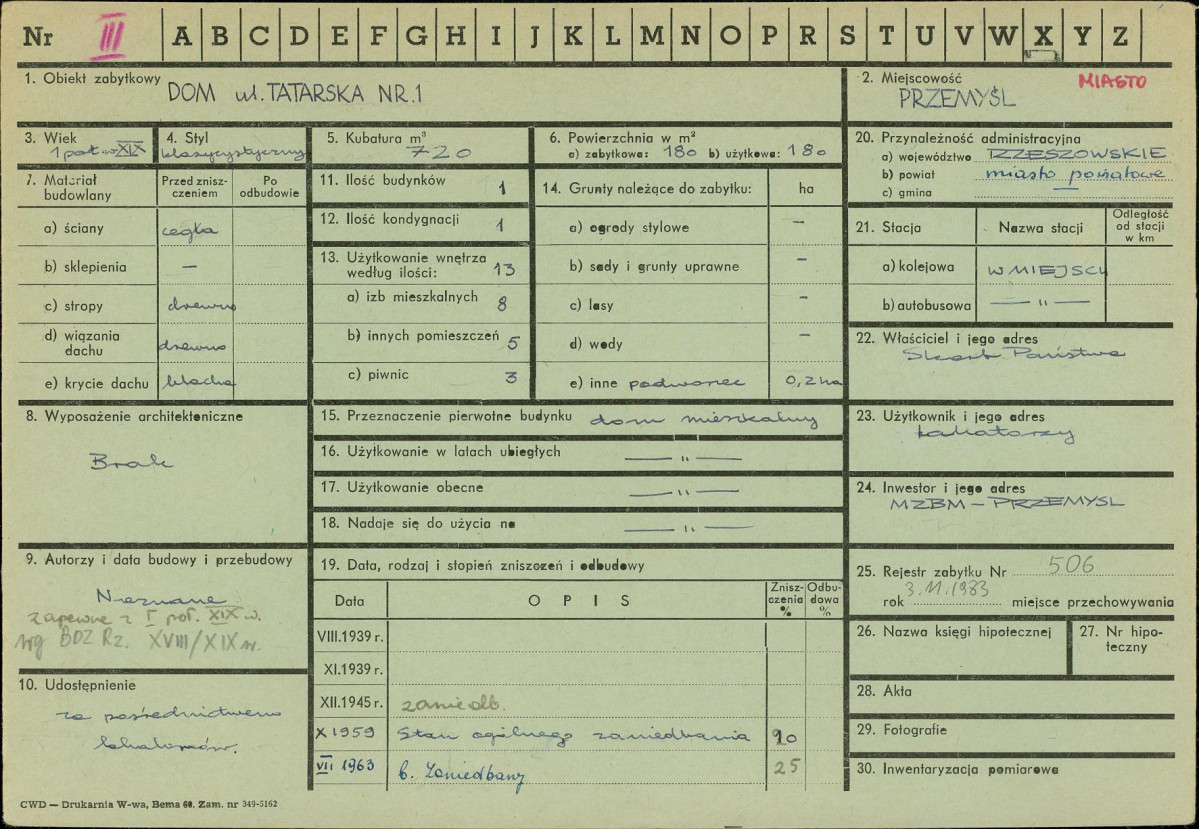 Nr III A B C D E F G H I J K L M N O P R S T U V W X Y Z
1. Obiekt zabytkowy DOM ul. TATARSKA NR.1
2. Miejscowość MIASTO
PRZEMYŚL
3. Wiek
1 poł. w. XIX
4. Styl
klasycystyczny
5. Kubatura m³
720
6. Powierzchnia w m²
a) zabytkowa: 180 b) użytkowa: 180
7. Materiał budowlany
Przed zniszczeniem
Po odbudowie
a) ściany cegła
b) sklepienia —
c) stropy drewno
d) wiązania dachu drewno
e) krycie dachu blacha
8. Wyposażenie architektoniczne
Brak
9. Autorzy i data budowy i przebudowy
Nieznane
zapewne z I poł. XIX w.
wg BDZ Rz. XVIII/XIX w.
10. Udostępnienie
za pośrednictwem
lokatorów.
11. Ilość budynków 1
12. Ilość kondygnacji 1
13. Użytkowanie wnętrza
według ilości: 13
a) izb mieszkalnych 8
b) innych pomieszczeń 5
c) piwnic 3
14. Grunty należące do zabytku: ha
a) ogrody stylowe —
b) sady i grunty uprawne —
c) lasy —
d) wody —
e) inne podworzec 0,2 ha
15. Przeznaczenie pierwotne budynku dom mieszkalny
16. Użytkowanie w latach ubiegłych — „ —
17. Użytkowanie obecne — „ —
18. Nadaje się do użycia na — „ —
19. Data, rodzaj i stopień zniszczeń i odbudowy
Data OPIS Zniszczenia % Odbudowa %
VIII.1939 r.
XI.1939 r.
XII.1945 r. zaniedb.
X 1959 Stan ogólnego zaniedbania 20
VII 1963 b. Zaniedbany 25
20. Przynależność administracyjna
a) województwo RZESZOWSKIE
b) powiat miasto powiatowe
c) gmina —
21. Stacja Nazwa stacji Odległość od stacji w km
a) kolejowa W MIEJSCU
b) autobusowa — „ —
22. Właściciel i jego adres
Skarb Państwa
23. Użytkownik i jego adres
Lokatorzy
24. Inwestor i jego adres
MZBM – PRZEMYŚL
25. Rejestr zabytku Nr 506
rok 3.11.1983 miejsce przechowywania
26. Nazwa księgi hipotecznej
27. Nr hipoteczny
28. Akta
29. Fotografie
30. Inwentaryzacja pomiarowa
CWD — Drukarnia W-wa, Bema 60. Zam. nr 349-5162